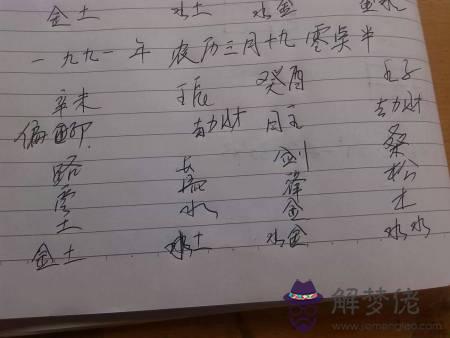 金土 水土 水金
一九九一年 农历三月十九 零点半
辛未 壬辰 癸酉 壬子
偏印 劫财 日主 劫财
路 长 剑 桑
流 锋 松
土 水 金 木
金土 水土 水金 水水
解梦佬
www.jiemenglao.com